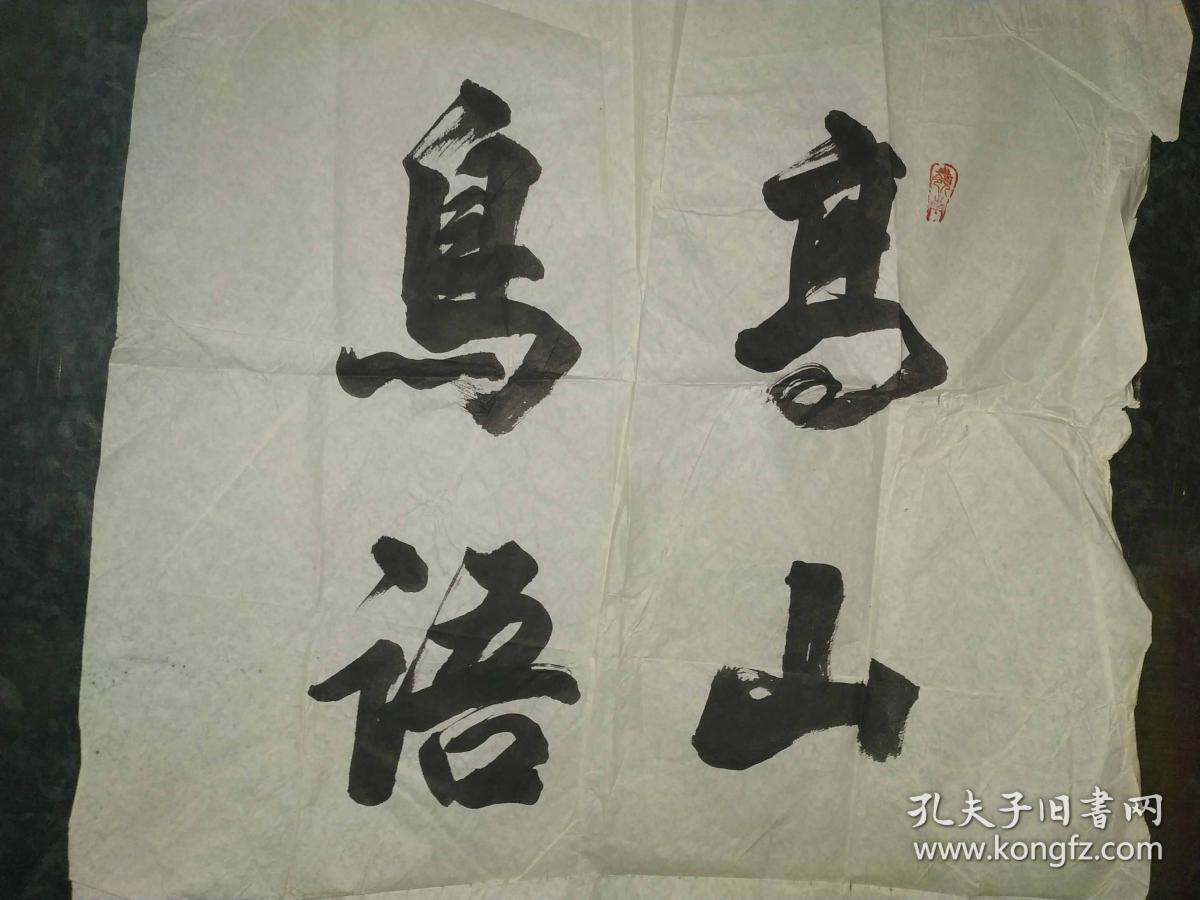 高山
鸟语
孔夫子旧書网
www.kongfz.com